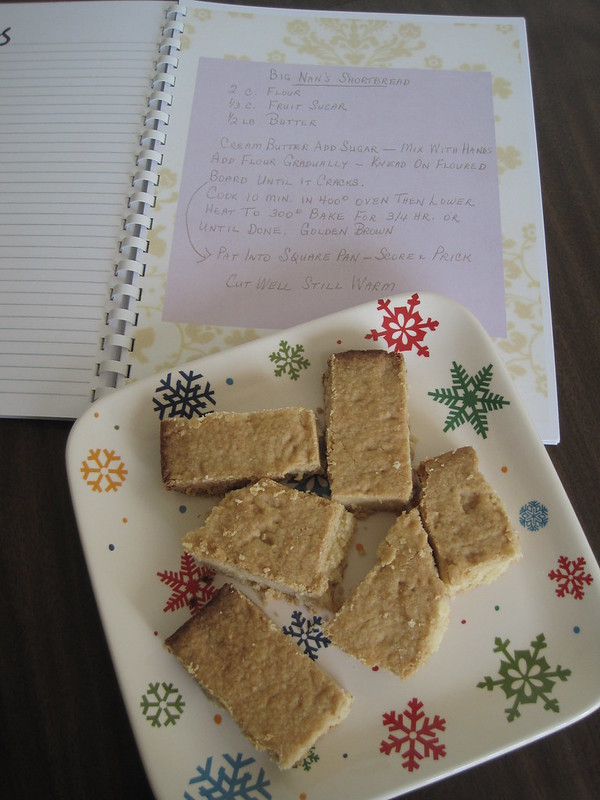 s
BIG NAN'S SHORTBREAD
2 C. FLOUR
1/3 C. FRUIT SUGAR
1/2 LB BUTTER
CREAM BUTTER ADD SUGAR — MIX WITH HANDS
ADD FLOUR GRADUALLY — KNEAD ON FLOURED
BOARD UNTIL IT CRACKS.
COOK 10 MIN. IN 400° OVEN THEN LOWER
HEAT TO 300° BAKE FOR 3/4 HR. OR
UNTIL DONE, GOLDEN BROWN
PAT INTO SQUARE PAN — SCORE & PRICK
CUT WELL STILL WARM